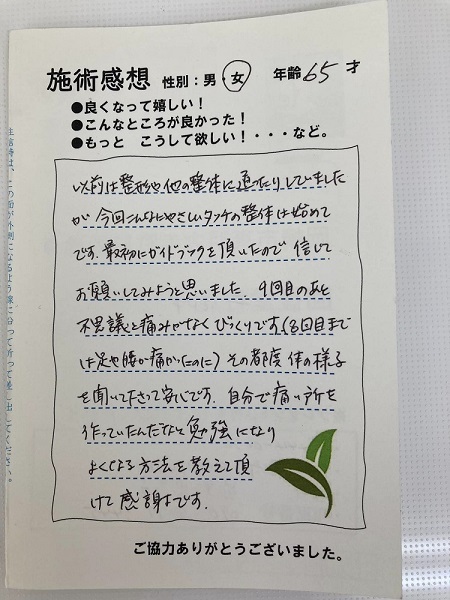 施術感想 性別：男・女 年齢 65 才
●良くなって嬉しい！
●こんなところが良かった！
●もっと　こうして欲しい！・・・など。
以前は整形や他の整体に通たりしていました
が 今回こんなにやさしいタッチの整体は始めて
です. 最初にガイドブックを頂いたので 信じて
お願いしてみようと思いました. 9回目のあと
不思議と痛みがなく びっくりです(8回目まで
は足や腰が痛かったのに) その都度 体の様子
を聞いて下さって安心です. 自分で痛い所を
作っていたんだなと 勉強になり
よくなる方法を教えて頂
けて 感謝です.
ご協力ありがとうございました。
返信時は、この面が外側になるよう線に沿って折って差し出してください。